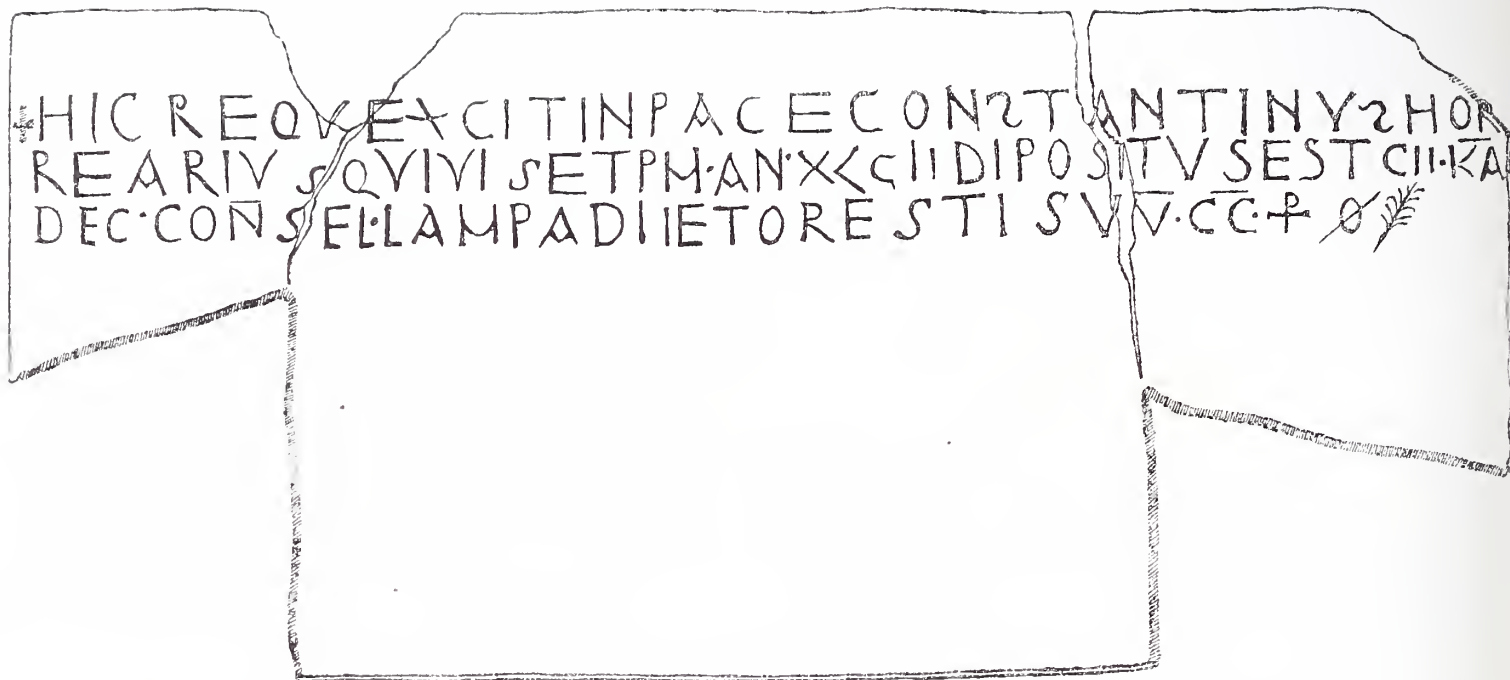 +HIC REQVEXCITINPACECONSTANTINVSHOR
REARIVSQVIVISETPM·AN·X<ϚIIDIPOSITVSEST ϚII·KA
DEC·CONSEL·LAMPADIIETORESTISVV·CC·⳨